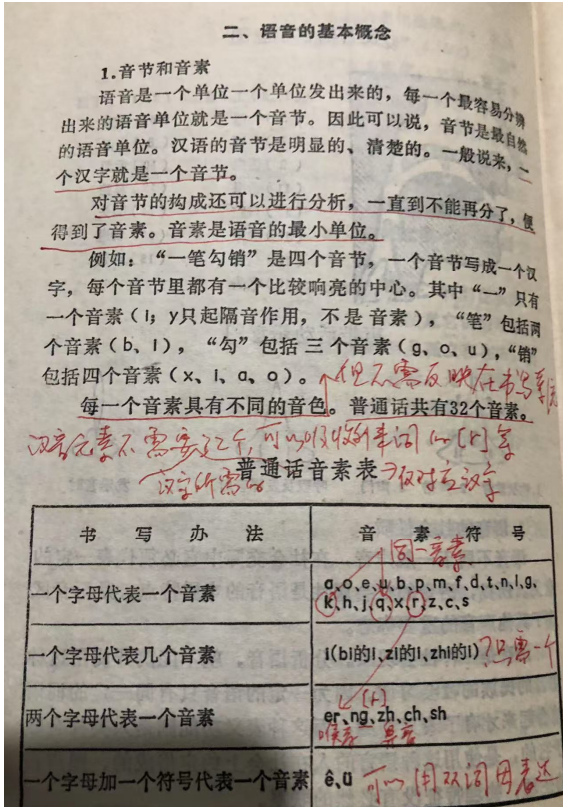 二、语音的基本概念
1.音节和音素
语音是一个单位一个单位发出来的，每一个最容易分辨
出来的语音单位就是一个音节。因此可以说，音节是最自然
的语音单位。汉语的音节是明显的、清楚的。一般说来，一
个汉字就是一个音节。
对音节的构成还可以进行分析，一直到不能再分了，便
得到了音素。音素是语音的最小单位。
例如：“一笔勾销”是四个音节，一个音节写成一个汉
字，每个音节里都有一个比较响亮的中心。其中“一”只有
一个音素（i；y只起隔音作用，不是音素），“笔”包括两
个音素（b、i），“勾”包括三个音素（g、o、u），“销”
包括四个音素（x、i、a、o）。
但不需反映在书写系统
每一个音素具有不同的音色。普通话共有32个音素。
汉字所需的
仅对应汉字
普通话音素表
书写办法 音素符号
同一音素
一个字母代表一个音素 a、o、e、u、b、p、m、f、d、t、n、l、g、
k、h、j、q、x、r、z、c、s
一个字母代表几个音素 i（bi的i、zi的i、zhi的i） ?只需一个
两个字母代表一个音素 er、ng、zh、ch、sh
一个字母加一个符号代表一个音素 ê、ü 可以用双词母表达